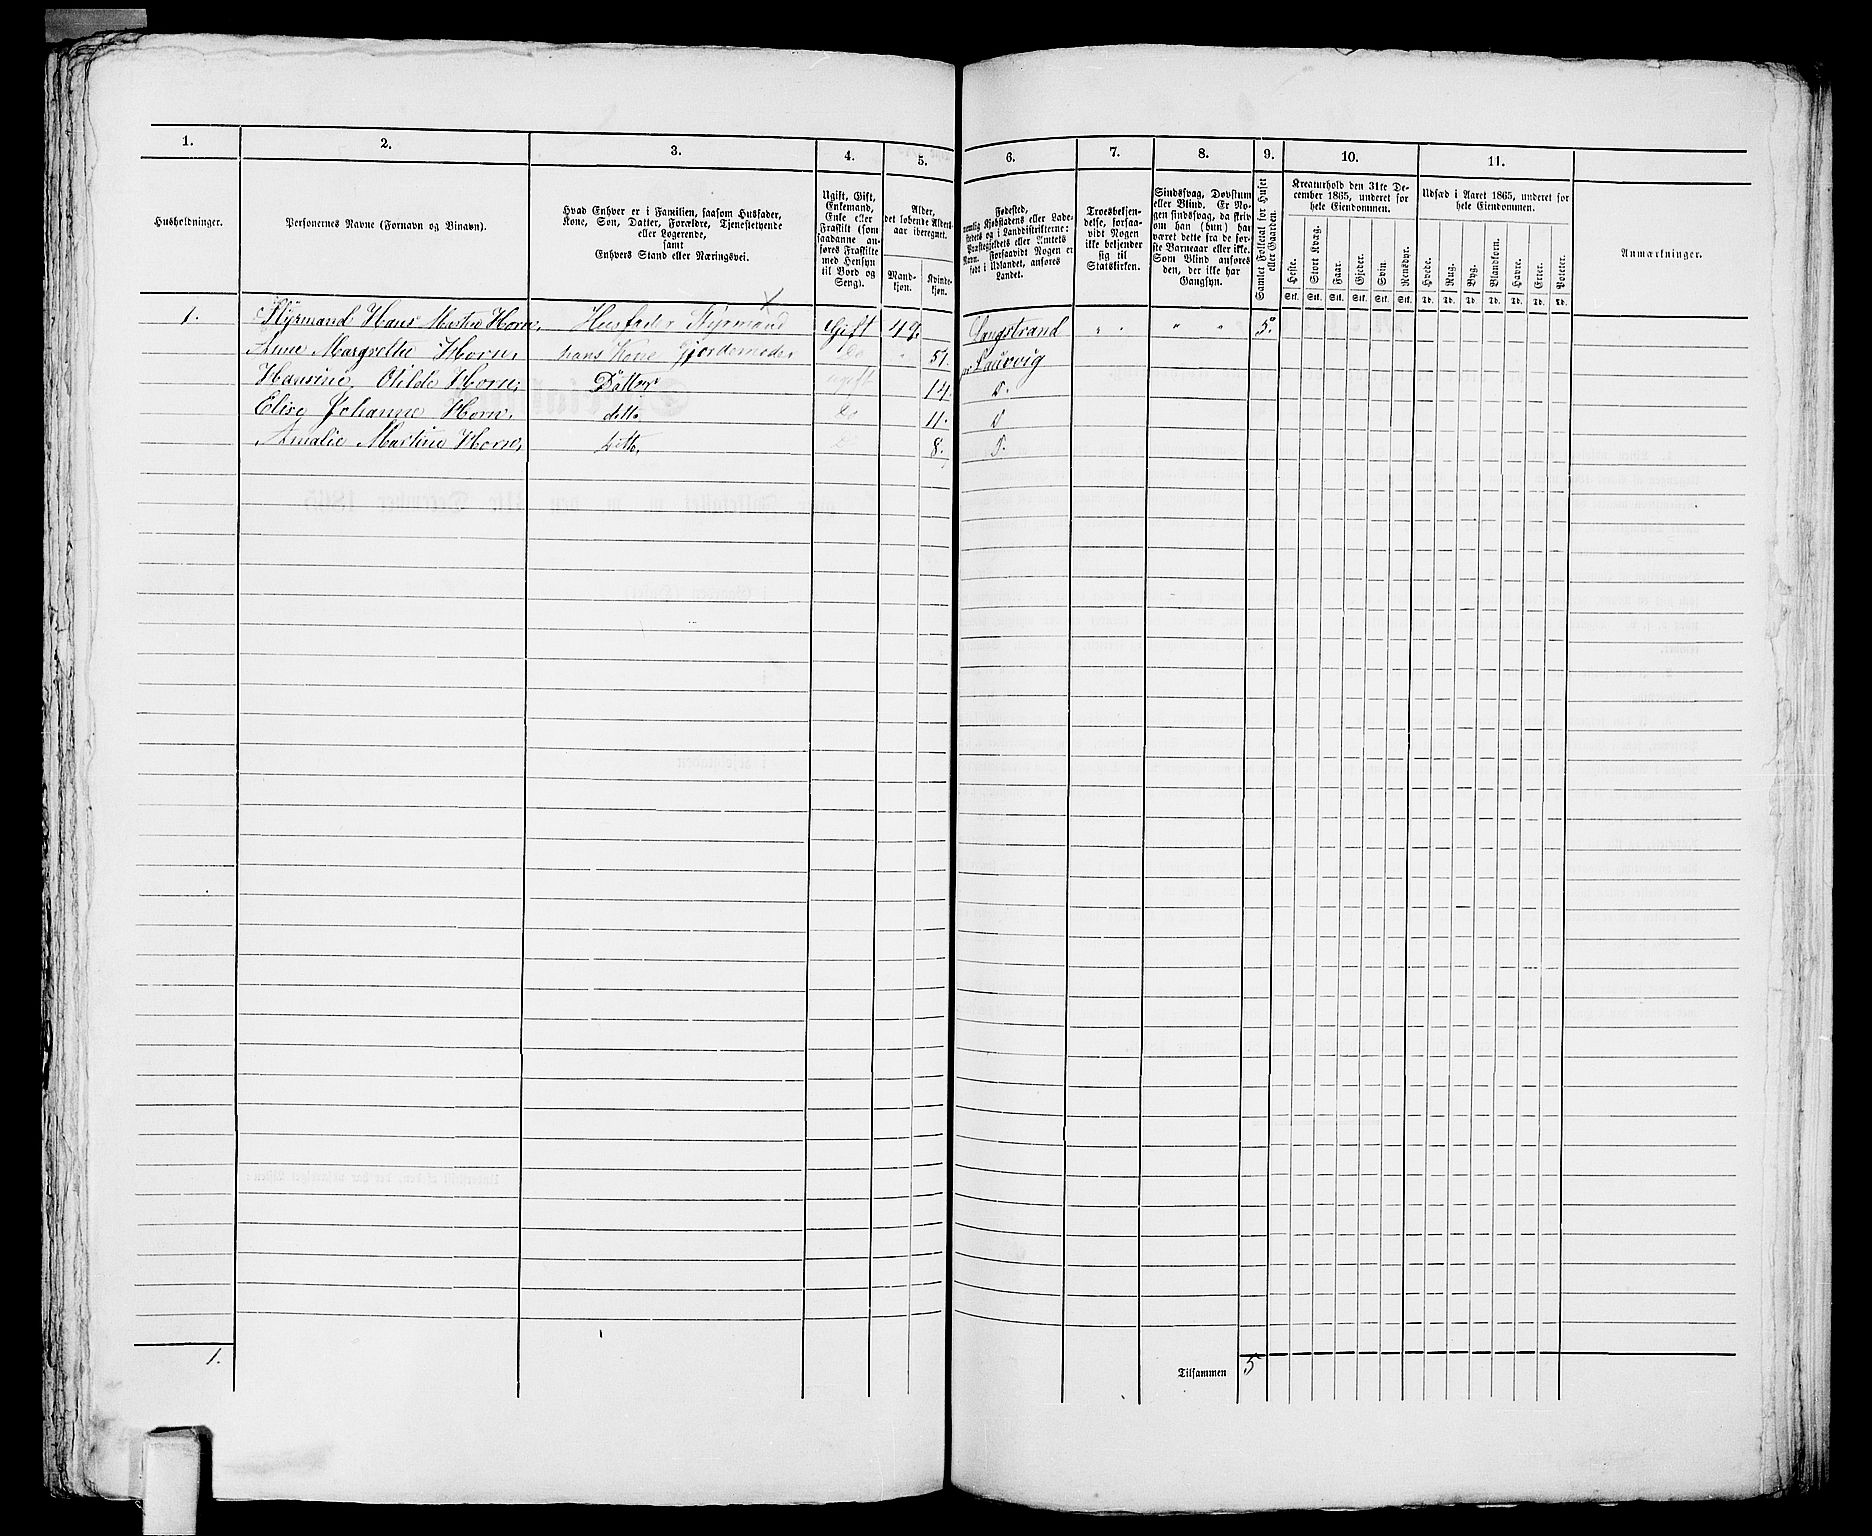 1. 2. 3. 4. 5. 6. 7. 8. 9. 10. 11.
Husholdninger.
Personernes Navne (Fornavn og Binavn).
Hvad Enhver er i Familien, saasom Husfader,
Kone, Søn, Datter, Forældre, Tjenestetyende
eller Logerende,
samt
Enhvers Stand eller Næringsvei.
Ugift, Gift,
Enkemand,
Enke eller
Fraskilt (som
saadanne an-
føres Fraskilte
med Hensyn
til Bord og
Seng).
Alder,
det løbende Alders-
aar iberegnet.
Mand-
kjøn.
Kvinde-
kjøn.
Fødested,
nemlig Kjøbstadens eller Lade-
stedets og i Landdistrikterne:
Præstegjeldets eller Amtets
Navn. Forsaavidt Nogen er
født i Udlandet, anføres
Landet.
Troesbekjen-
delse, forsaa-
vidt Nogen
ikke bekjender
sig til
Statskirken.
Sindssvag, Døvstum
eller Blind. Er No-
gen sindssvag, da skriv
om han (hun) har
været dette fra de før-
ste Barneaar eller ikke.
Som Blind anføres
den, der ikke har
Gangsyn.
Samlet Folketal for Huset
eller Gaarden.
Kreaturhold den 31te De-
cember 1865, underet for
hele Eiendommen.
Heste. Stort Kvæg. Faar. Gjeder. Svin. Rensdyr.
Stk. Stk. Stk. Stk. Stk. Stk.
Udsæd i Aaret 1865, underet for
hele Eiendommen.
Hvede. Rug. Byg. Blandkorn. Havre. Erter. Poteter.
Td. Td. Td. Td. Td. Td. Td.
Anmærkninger.
1. Styrmand Hans Morten Horn, Husfader Styrmand Gift 49. Langstrand " " " " 5.
Anne Margrethe Horn, hans Kone Gjordemoder do " 51. Laurvig
Hansine Otilde Horn, Datter ugift 14. D.
Elise Johanne Horn. ditto do 11. D
Amalie Martine Horn, ditto, D 8. D.
1. Tilsammen 5